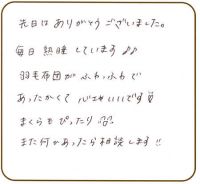 先日はありがとうございました。
毎日熟睡しています♪♪
羽毛布団がふわっふわで
あったかくて心地いいです
まくらもぴったり
また何かあったら相談します!!